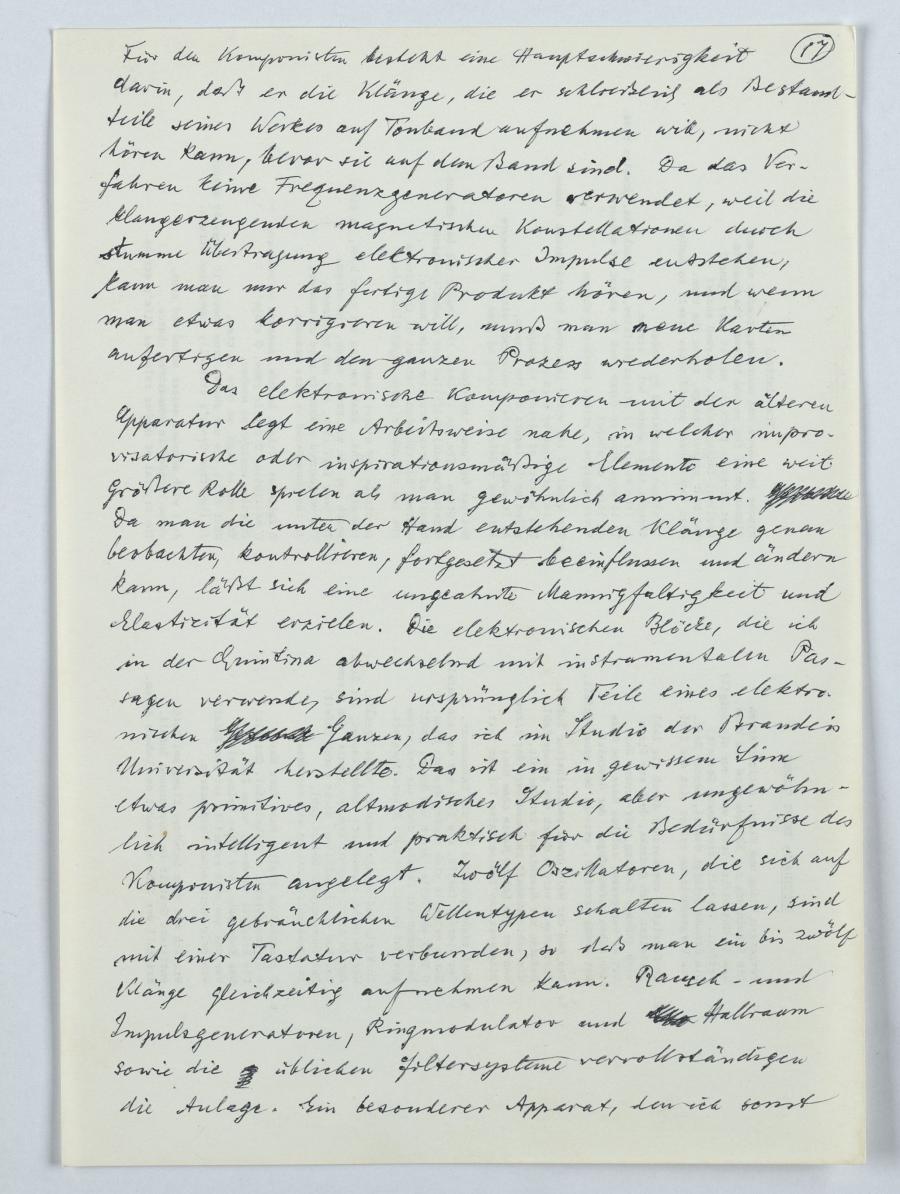 17
Für den Komponisten besteht eine Hauptschwierigkeit
darin, daß er die Klänge, die er schließlich als Bestand-
teile seines Werkes auf Tonband aufnehmen will, nicht
hören kann, bevor sie auf dem Band sind. Da das Ver-
fahren keine Frequenzgeneratoren verwendet, weil die
klangerzeugenden magnetischen Konstellationen durch
stumme Übertragung elektronischer Impulse entstehen,
kann man nur das fertige Produkt hören, und wenn
man etwas korrigieren will, muß man neue Karten
anfertigen und den ganzen Prozess wiederholen.
Das elektronische Komponieren mit der älteren
Apparatur legt eine Arbeitsweise nahe, in welcher impro-
visatorische oder inspirationsmäßige Elemente eine weit
größere Rolle spielen als man gewöhnlich annimmt.
Da man die unter der Hand entstehenden Klänge genau
beobachten, kontrollieren, fortgesetzt beeinflussen und ändern
kann, läßt sich eine ungeahnte Mannigfaltigkeit und
Elastizität erzielen. Die elektronischen Blöcke, die ich
in der Quintina abwechselnd mit instrumentalen Pas-
sagen verwende, sind ursprünglich Teile eines elektro-
nischen Ganzen, das ich im Studio der Brandeis
Universität herstellte. Das ist ein in gewissem Sinn
etwas primitives, altmodisches Studio, aber ungewöhn-
lich intelligent und praktisch für die Bedürfnisse des
Komponisten angelegt. Zwölf Oszillatoren, die sich auf
die drei gebräuchlichen Wellentypen schalten lassen, sind
mit einer Tastatur verbunden, so daß man ein bis zwölf
Klänge gleichzeitig aufnehmen kann. Rausch- und
Impulsgeneratoren, Ringmodulator und Hallraum
sowie die üblichen Filtersysteme vervollständigen
die Anlage. Ein besonderer Apparat, den ich sonst